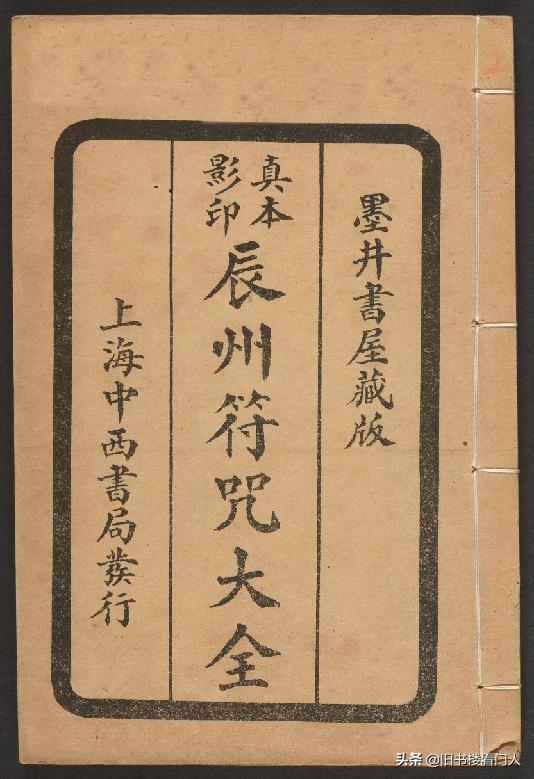 墨井書屋藏版
真本
影印
辰州符咒大全
上海中西書局發行
头条 @旧书楼看门人